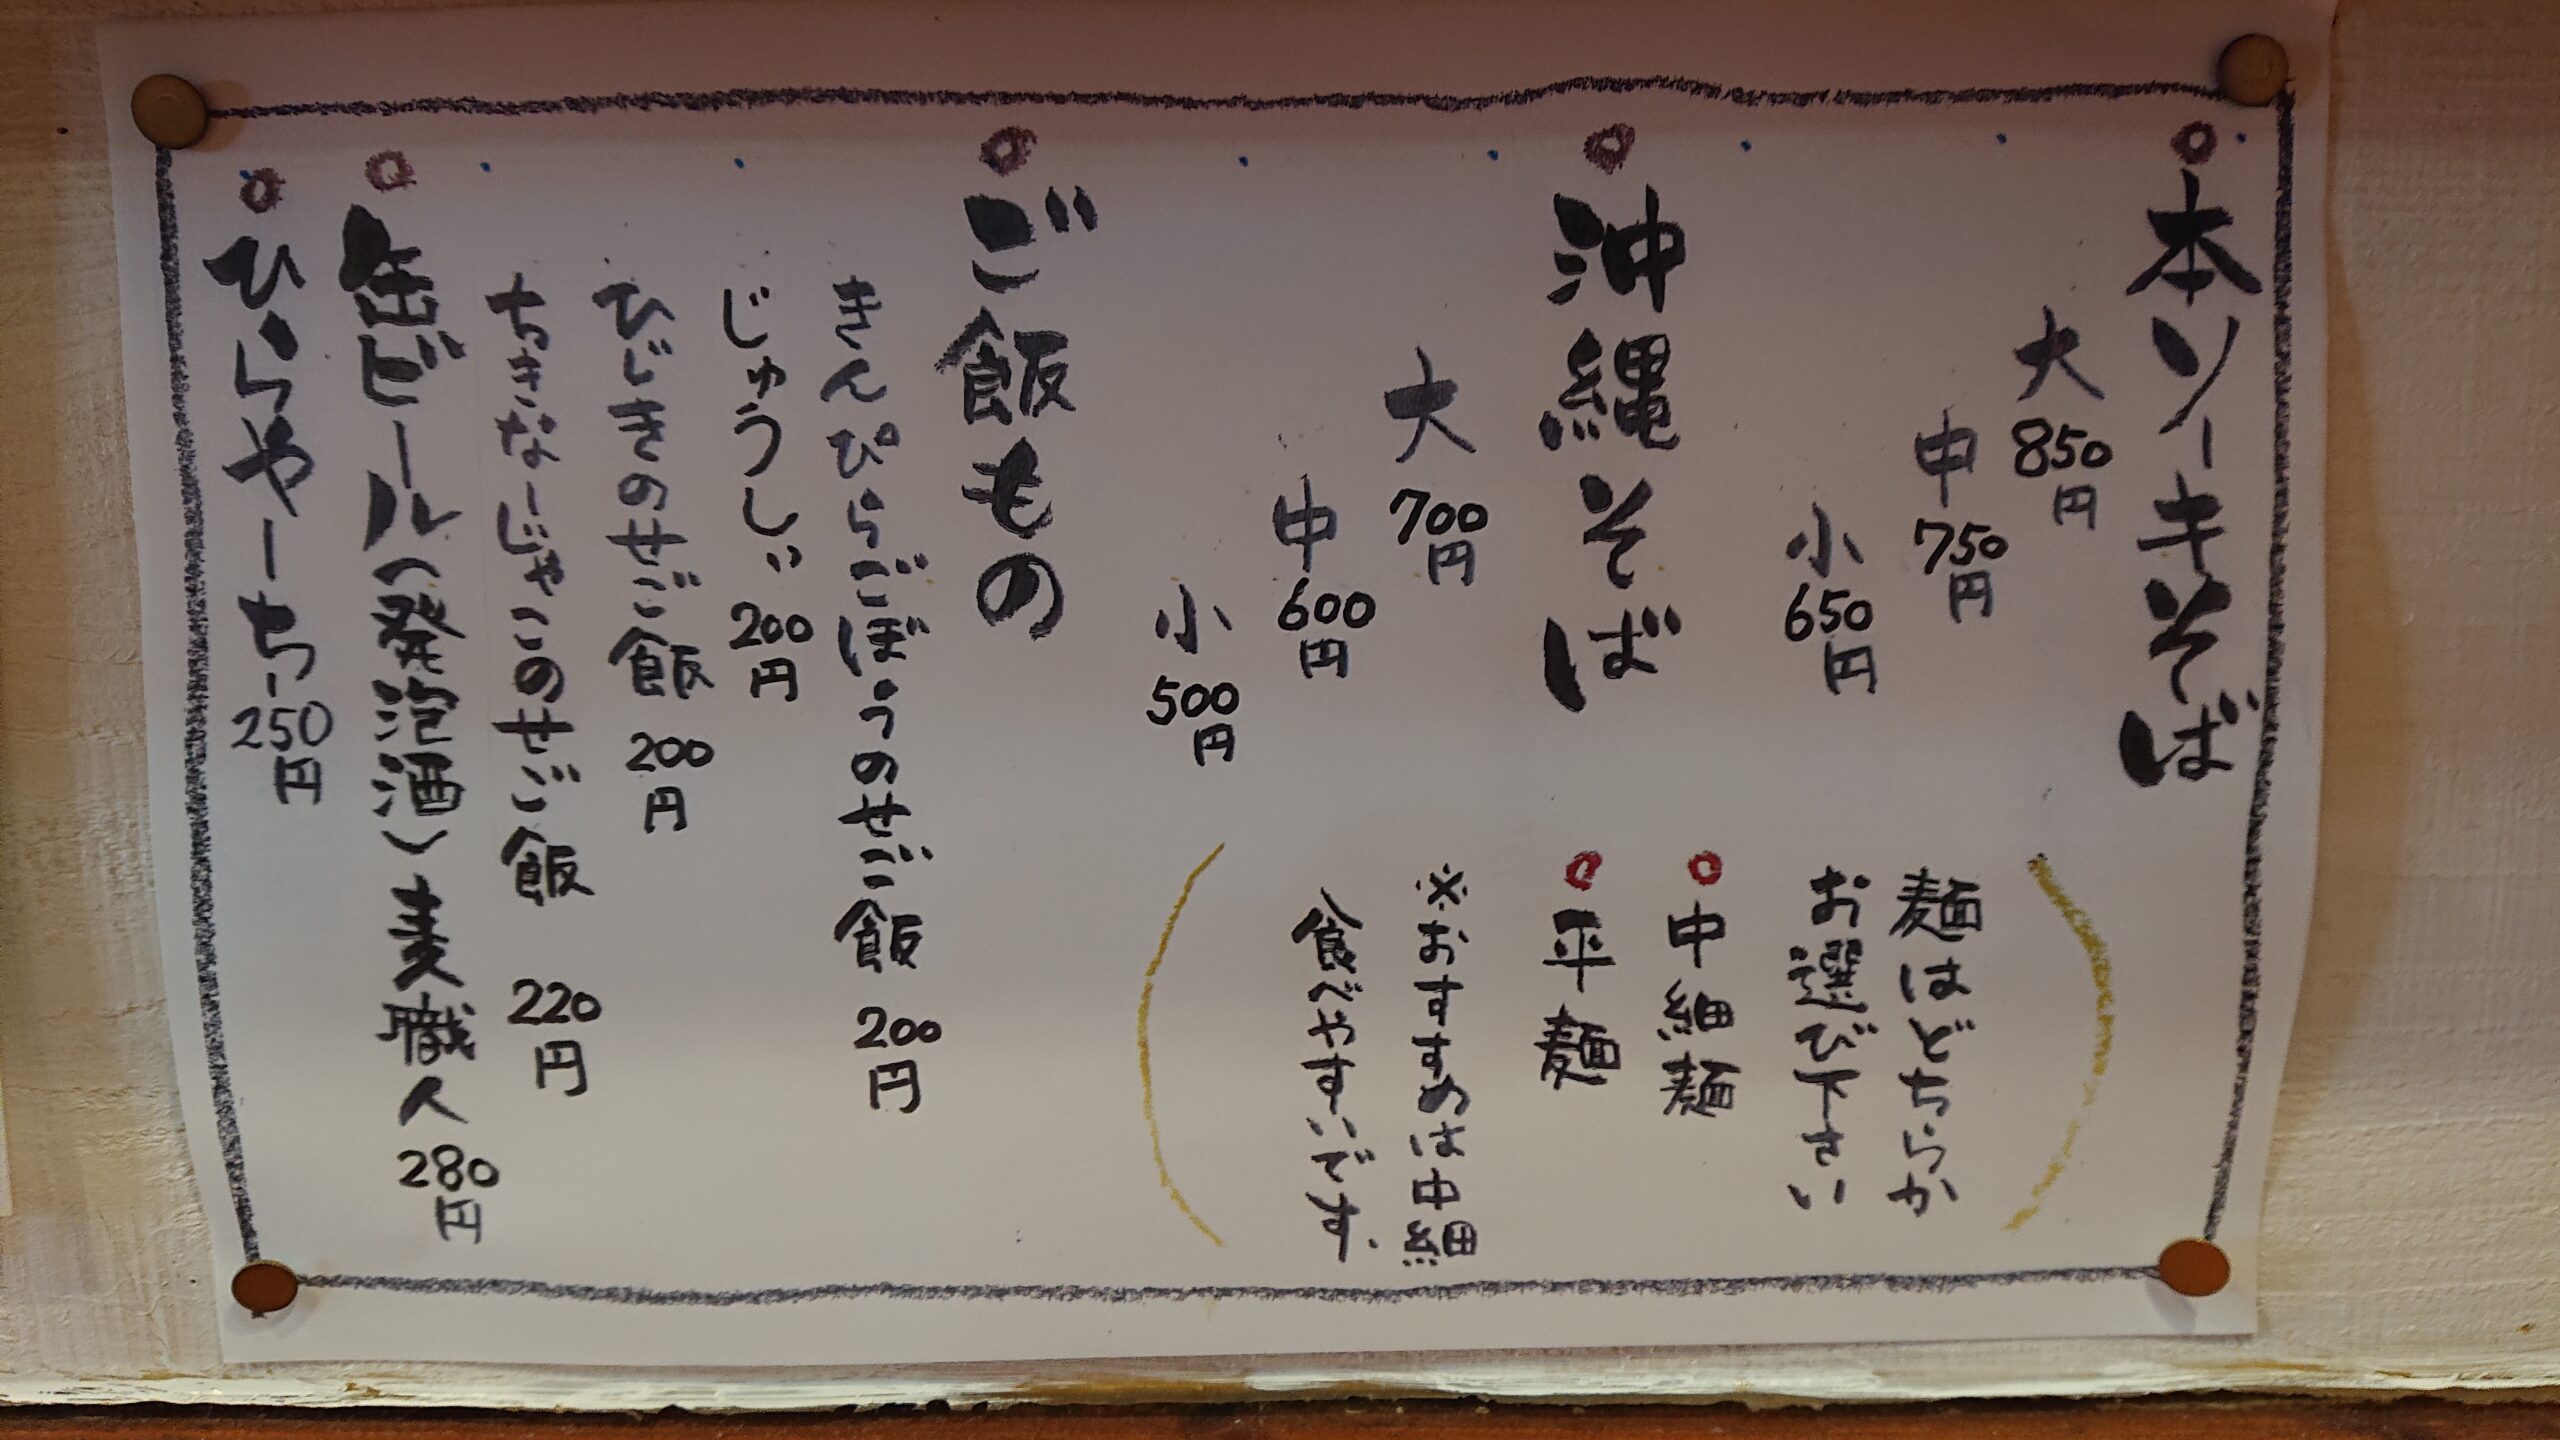 本ソーキそば
大 850円
中 750円
小 650円
沖縄そば
大 700円
中 600円
小 500円
麺はどちらか
お選び下さい
中細麺
平麺
※おすすめは中細
食べやすいです。
ご飯もの
きんぴらごぼうのせご飯 200円
じゅうしい 200円
ひじきのせご飯 200円
ちきなーじゃこのせご飯 220円
缶ビール(発泡酒)麦職人 280円
ひらやーちー 250円